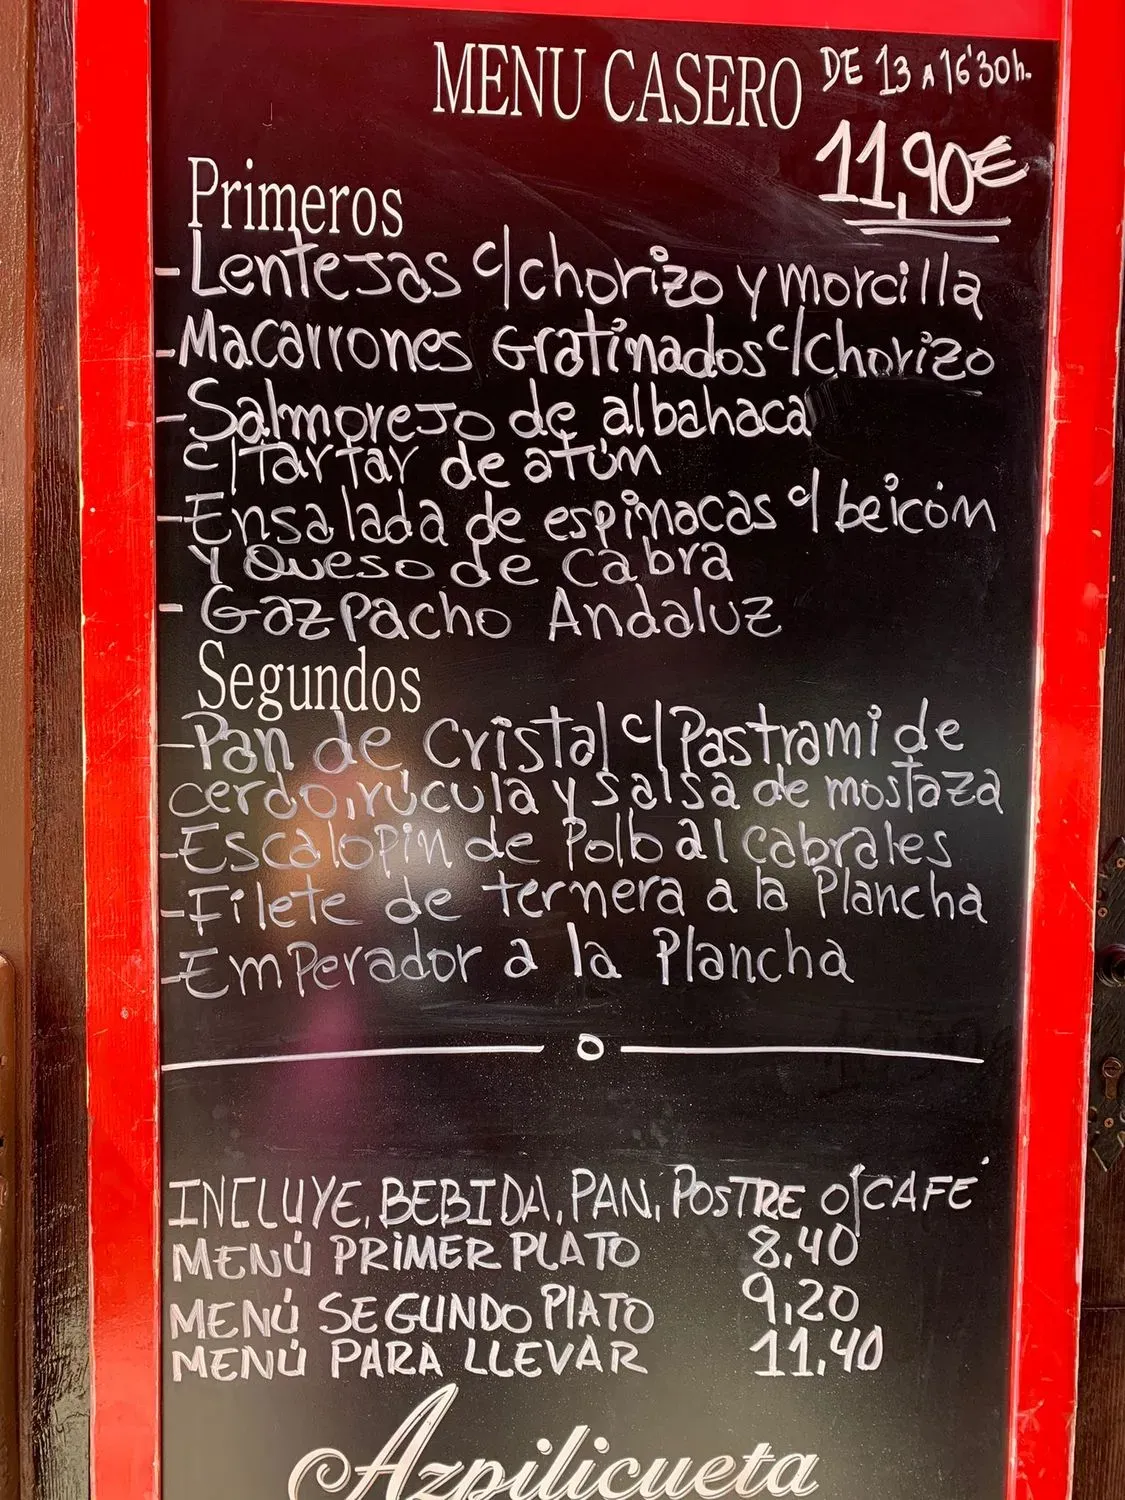 MENU CASERO DE 13 A 16'30h.
11,90€
Primeros
- Lentejas c/chorizo y morcilla
- Macarrones Gratinados c/chorizo
- Salmorejo de albahaca
c/tartar de atún
- Ensalada de espinacas c/ beicón
y Queso de cabra
- Gazpacho Andaluz
Segundos
- Pan de Cristal c/Pastrami de
cerdo, rúcula y salsa de mostaza
- Escalopin de Pollo al cabrales
- Filete de ternera a la Plancha
- Emperador a la Plancha
o
INCLUYE, BEBIDA, PAN, POSTRE O CAFÉ
MENÚ PRIMER PLATO 8,40
MENÚ SEGUNDO PLATO 9,20
MENÚ PARA LLEVAR 11,40
Azpilicueta